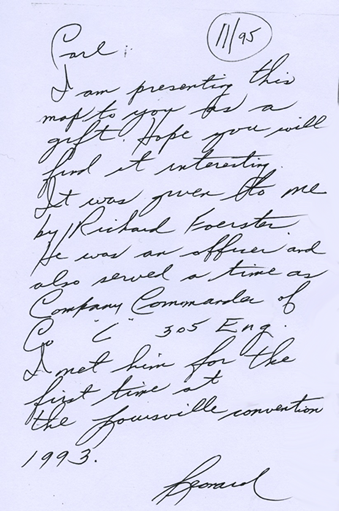 11/95
Carl:
I am presenting this
map to you as a
gift. Hope you will
find it interesting.
It was given to me
by Richard Foerster.
He was an officer and
also served a time as
Company Commander of
Co "C" 305 Eng.
I met him for the
first time at
the Louisville convention
1993.
Leonard